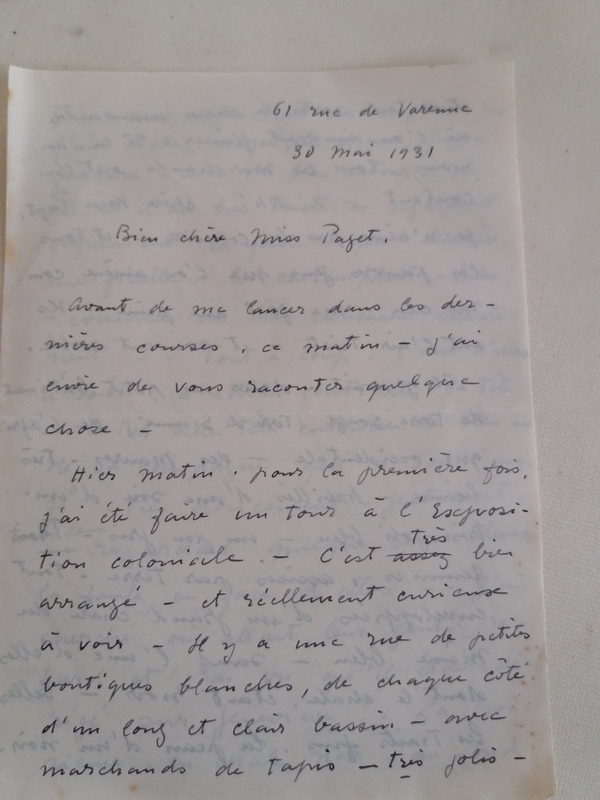 61 rue de Varenne
30 Mai 1931
Bien chère Miss Paget,
Avant de me lancer dans les der-
nières courses, ce matin - j'ai
envie de vous raconter quelque
chose -
Hier matin, pour la première fois,
j'ai été faire un tour à l'Exposi-
tion coloniale. - C'est ~~assez~~ très bien
arrangé - et réellement curieuse
à voir - Il y a une rue de petites
boutiques blanches, de chaque côté
d'un long et clair bassin - avec
marchands de tapis - très jolis -